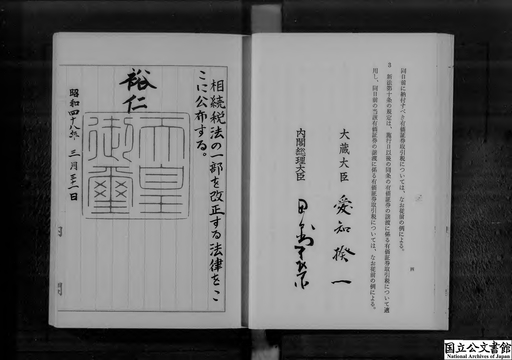 同日前に納付すべき有価証券取引税については、なお従前の例による。
3 新法第十条の規定は、施行日以後の同条の有価証券の譲渡に係る有価証券取引税について適
用し、同日前の当該有価証券の譲渡に係る有価証券取引税については、なお従前の例による。
大蔵大臣 愛知揆一
内閣総理大臣 田中角栄
相続税法の一部を改正する法律をこ
こに公布する。
裕仁
天皇
御璽
昭和四十八年三月三十一日
国立公文書館
National Archives of Japan